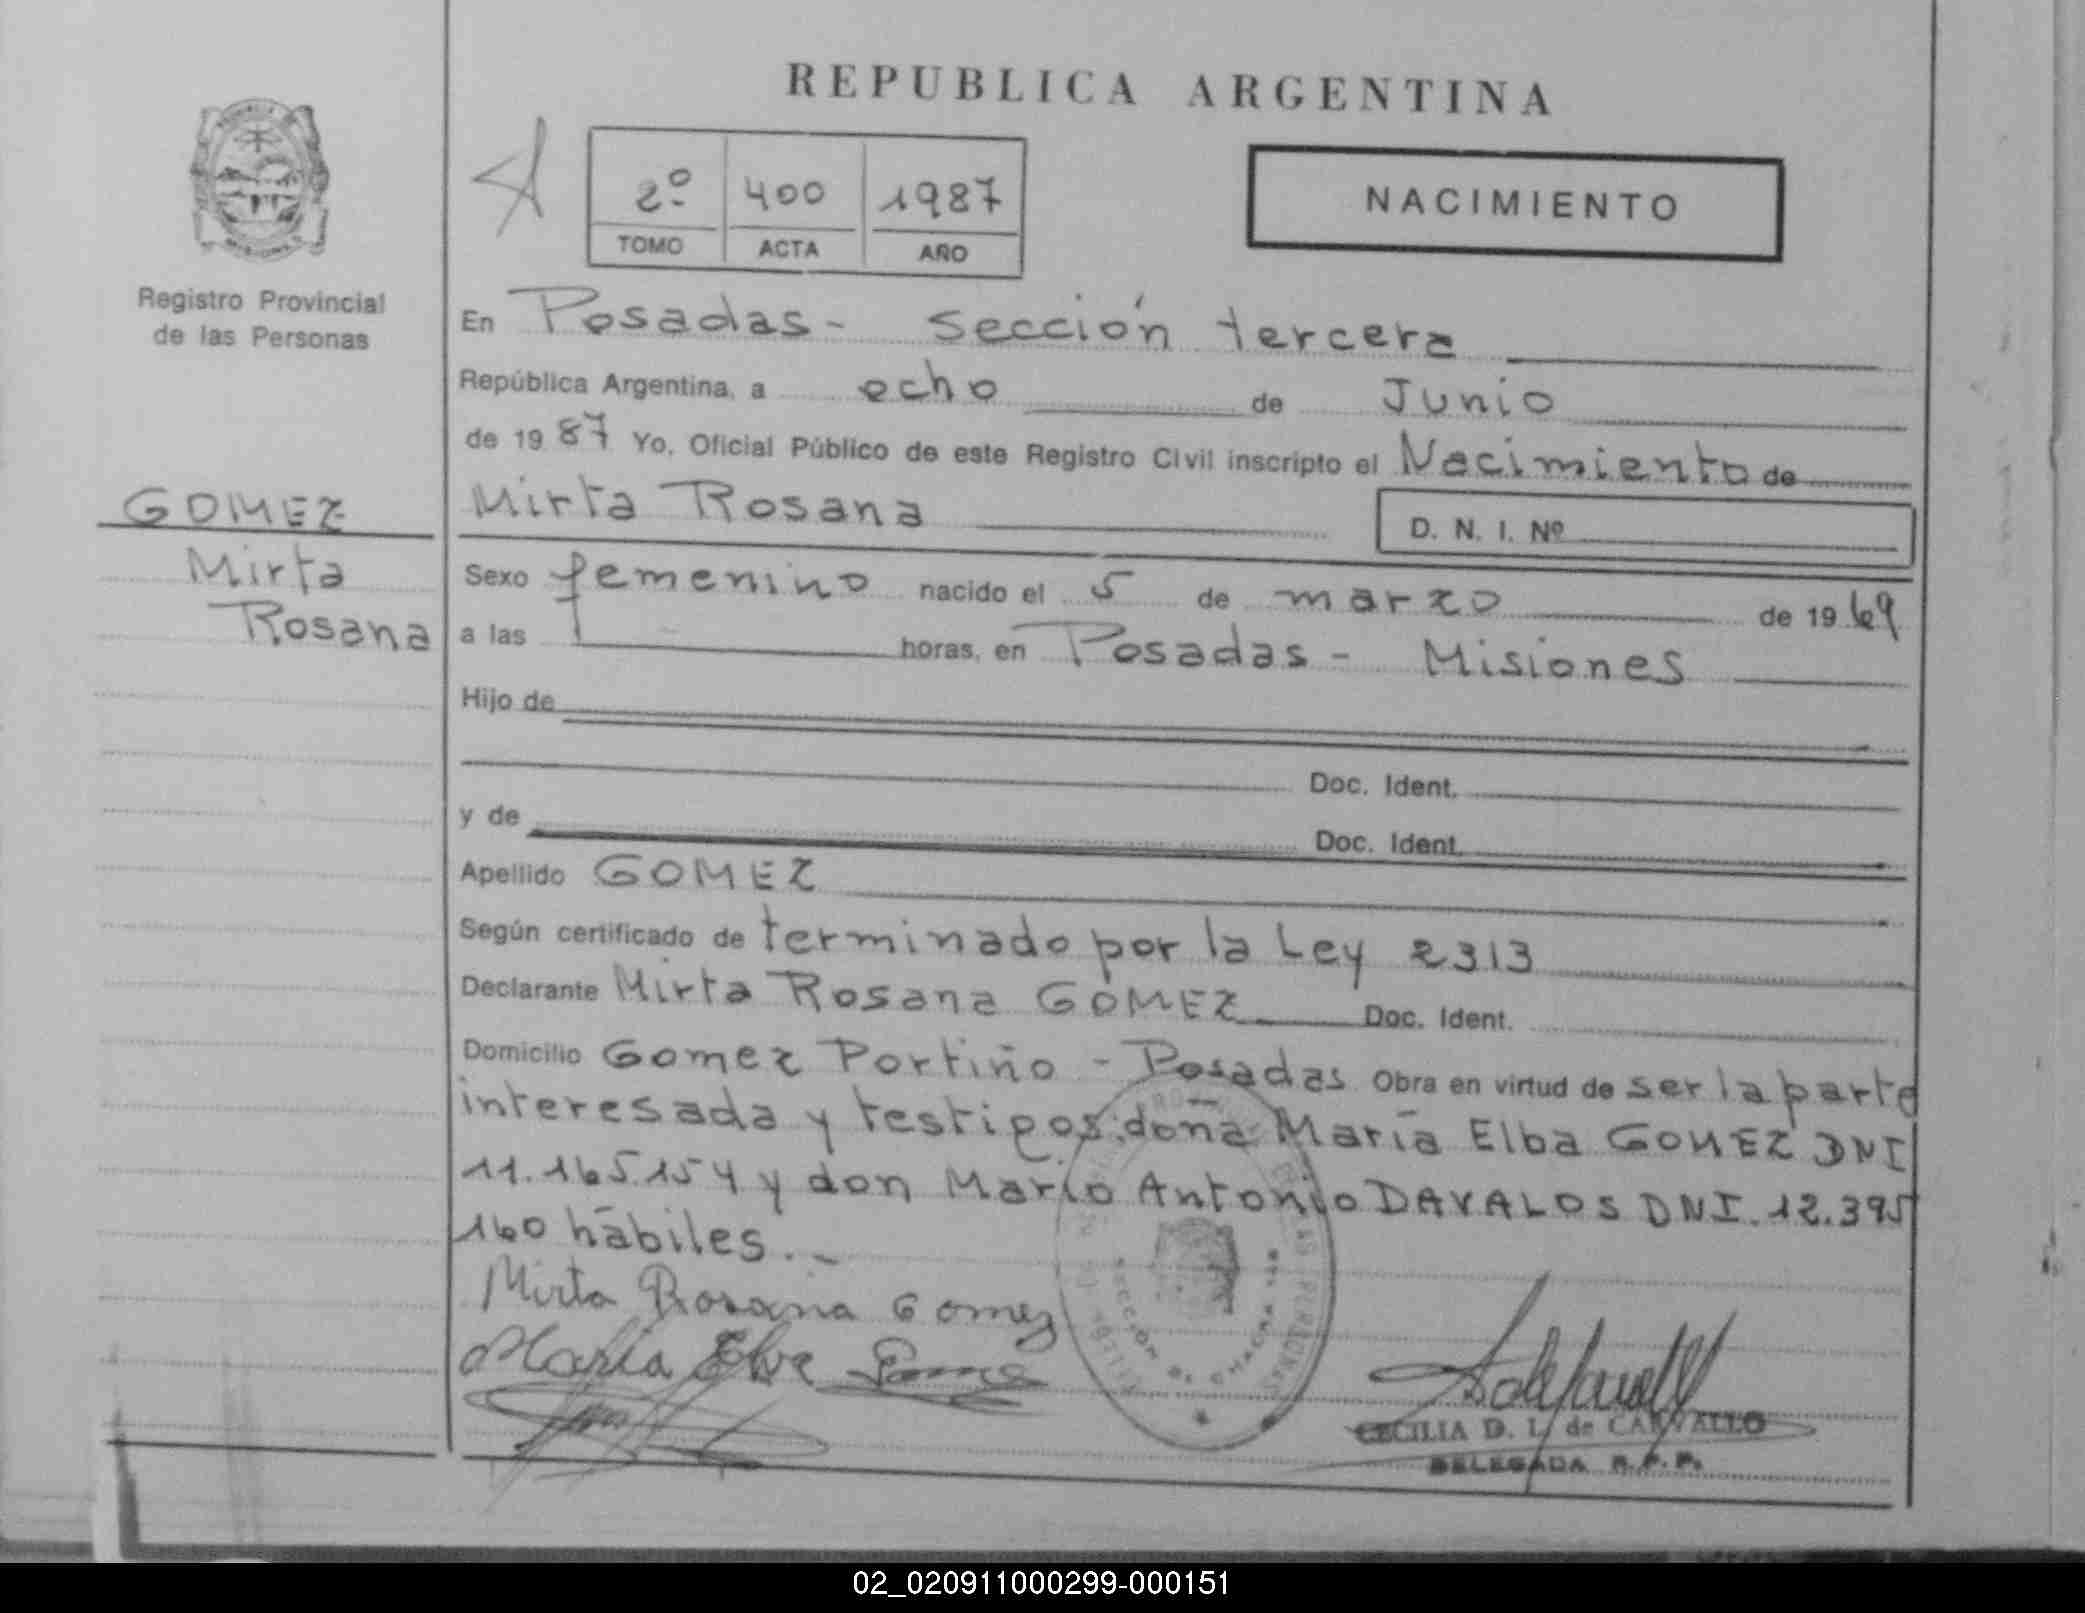 REPUBLICA ARGENTINA
2º 400 1987
TOMO ACTA AÑO
NACIMIENTO
Registro Provincial
de las Personas
En Posadas - Sección tercera
República Argentina, a ocho de Junio
de 1987 Yo, Oficial Público de este Registro Civil inscripto el Nacimiento de
GOMEZ
Mirta
Rosana
Mirta Rosana D. N. I. Nº
Sexo femenino nacido el 5 de marzo de 1969
a las horas, en Posadas - Misiones
Hijo de
Doc. Ident.
y de Doc. Ident.
Apellido GOMEZ
Según certificado de terminado por la Ley 2313
Declarante Mirta Rosana GOMEZ Doc. Ident.
Domicilio Gomez Portiño - Posadas Obra en virtud de ser la parte
interesada y testigos: doña María Elba GOMEZ DNI
11.165.154 y don Mario Antonio DAVALOS DNI. 12.395
160 hábiles.-
Mirta Rosana Gomez
María Elva
CECILIA D. L. de CARVALLO
DELEGADA R.P.P.
02_020911000299-000151